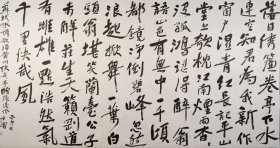 落日繡簾卷亭下水
連空知君為我新作
窗户濕青紅長記平山
堂上欹枕江南煙雨杳
杳沒孤鴻認得醉翁
語山色有無中一千頃
都鏡淨倒碧峰忽然
浪起掀舞一葉白
頭翁堪笑蘭臺公子
未解莊生天籟剛道
有雌雄一點浩然氣
千里快哉風